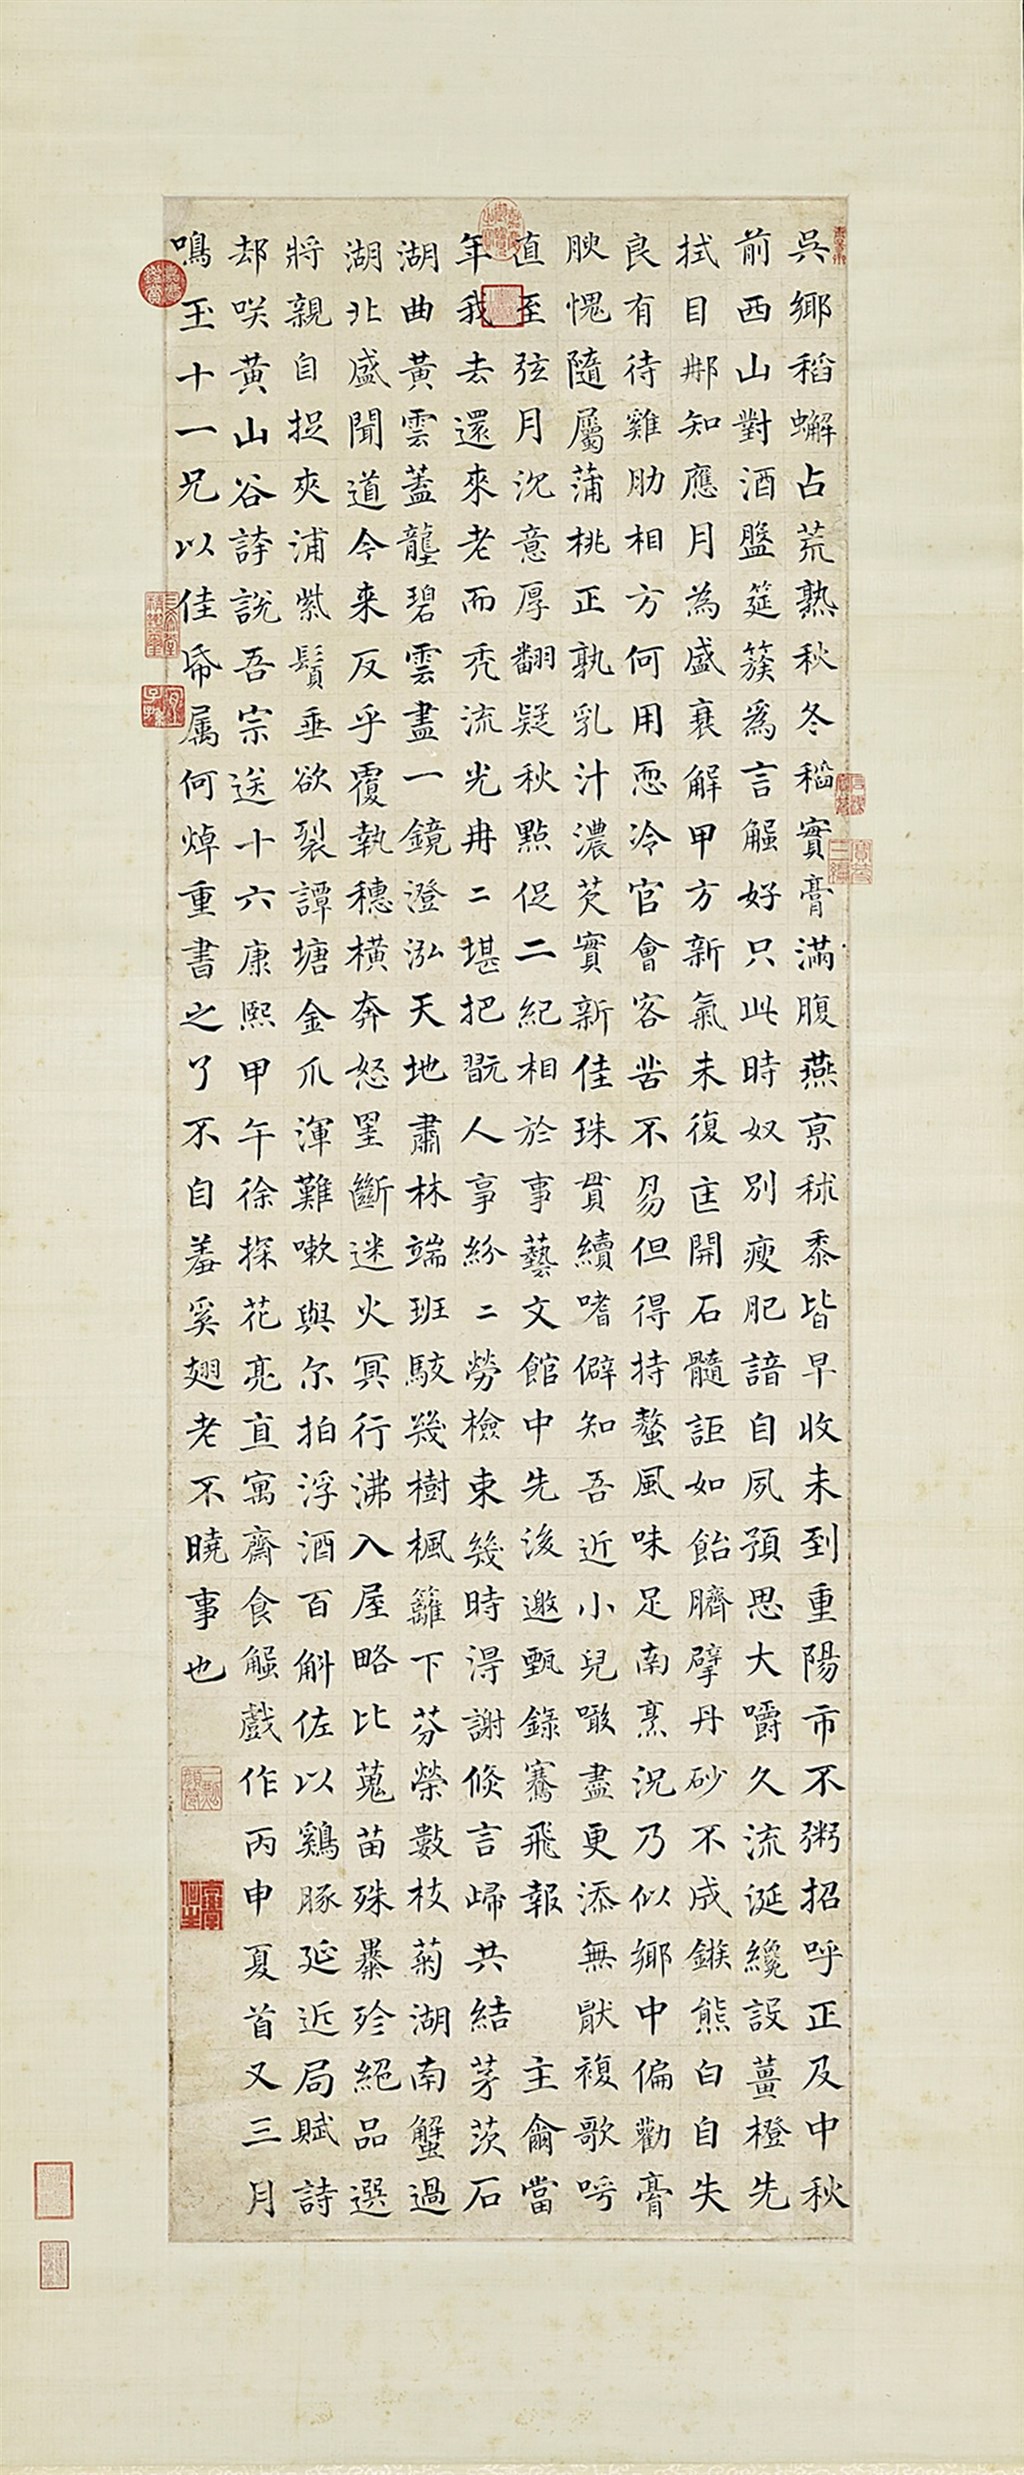 吳鄉稻蠏占荒熟秋冬稻實膏滿腹燕京秫黍皆早收未到重陽市不粥招呼正及中秋
前西山對酒盤筵簇為言蠏好只此時奴別瘦肥諳自夙預思大嚼久流涎纔設薑橙先
拭目那知應月為盛衰解甲方新氣未復匡開石髓詎如飴臍擘丹砂不成鏃熊白自失
良有待雞肋相方何用恧冷官會客苦不易但得持螯風味足南烹況乃似鄉中偏勸膏
腴愧隨屬蒲桃正孰乳汁濃芡實新佳珠貫續嗜僻知吾近小兒噉盡更添無猒複歌呺
直至弦月沉意厚翻疑秋點促二紀相於事藝文館中先後邀甄錄騫飛報主龠當
年我去還來老而禿流光冉二堪把翫人事紛二勞檢束幾時得謝倐言歸共結茅茨石
湖曲黃雲蓋壟碧雲盡一鏡澄泓天地肅林端班駮幾樹楓籬下芬榮數枝菊湖南蟹過
湖北盛聞道今来反乎覆執穗橫奔怒罣斷迷火冥行沸入屋略比蒐苗殊暴殄絕品選
將親自捉夾浦紫鬚垂欲裂譚塘金爪渾難嗽與尔拍浮酒百斛佐以鷄豚延近局賦詩
却咲黃山谷誇說吾宗送十六康熙甲午徐探花亮直寓齋食蠏戲作丙申夏首又三月
鳴玉十一兄以佳帋属何焯重書之了不自羞奚翅老不曉事也